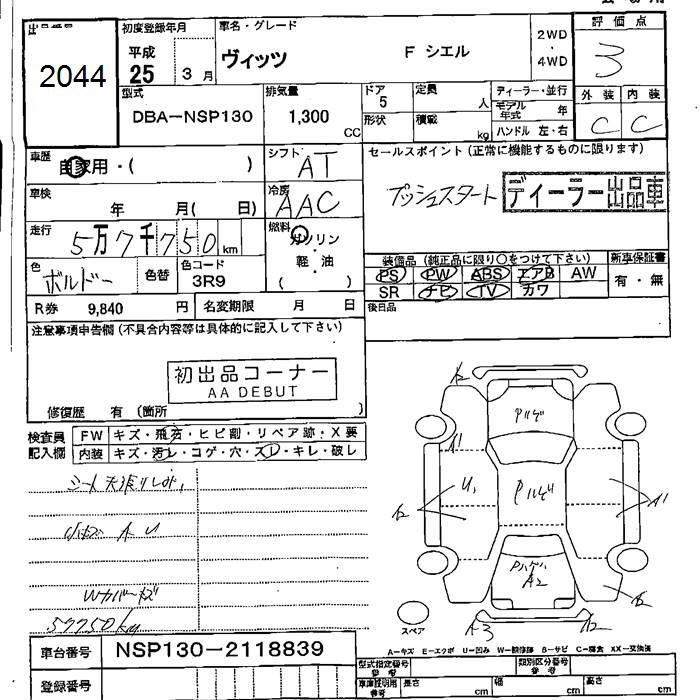 出品番号 初度登録年月 車名・グレード 2WD・4WD 評価点
2044 平成25 3月 ヴィッツ F シエル 3
型式 排気量 ドア 定員 ディーラー・並行 外装 内装
DBA-NSP130 1,300 CC 5 人 モデル年式 年 C C
形状 積載 kg ハンドル 左・右
車歴 自家用・( ) シフト AT セールスポイント (正常に機能するものに限ります)
車検 年 月( 日) 冷房 AAC プッシュスタート ディーラー出品車
走行 5万7千750km 燃料 ガソリン・軽・油 ( )
装備品 (純正品に限り○をつけて下さい) 新車保証書
色 ボルドー 色替 色コード 3R9 PS PW ABS エアB AW 有・無
SR ナビ TV カワ
R券 9,840 円 名変期限 月 日 後日品
注意事項申告欄 (不具合内容等は具体的に記入して下さい)
初出品コーナー
AA DEBUT
修復歴 有 (箇所 )
検査員記入欄 FW キズ・飛石・ヒビ割・リペア跡・X要
内装 キズ・汚レ・コゲ・穴・スレ・キレ・破レ
A2
ハゲ
A1
U1 ハゲ
A2 A1
ハゲ
A2
A2
シート天張りしみ
Wカバーキズ
57750kg
スペア A3 A2
A-キズ E-エクボ U-凹み W-補修跡 B-サビ C-腐食 XX-交換済
車台番号 NSP130-2118839
型式指定番号 類別区分番号
参考
登録番号 車庫証明用参考 長さ cm 幅 cm 高さ cm